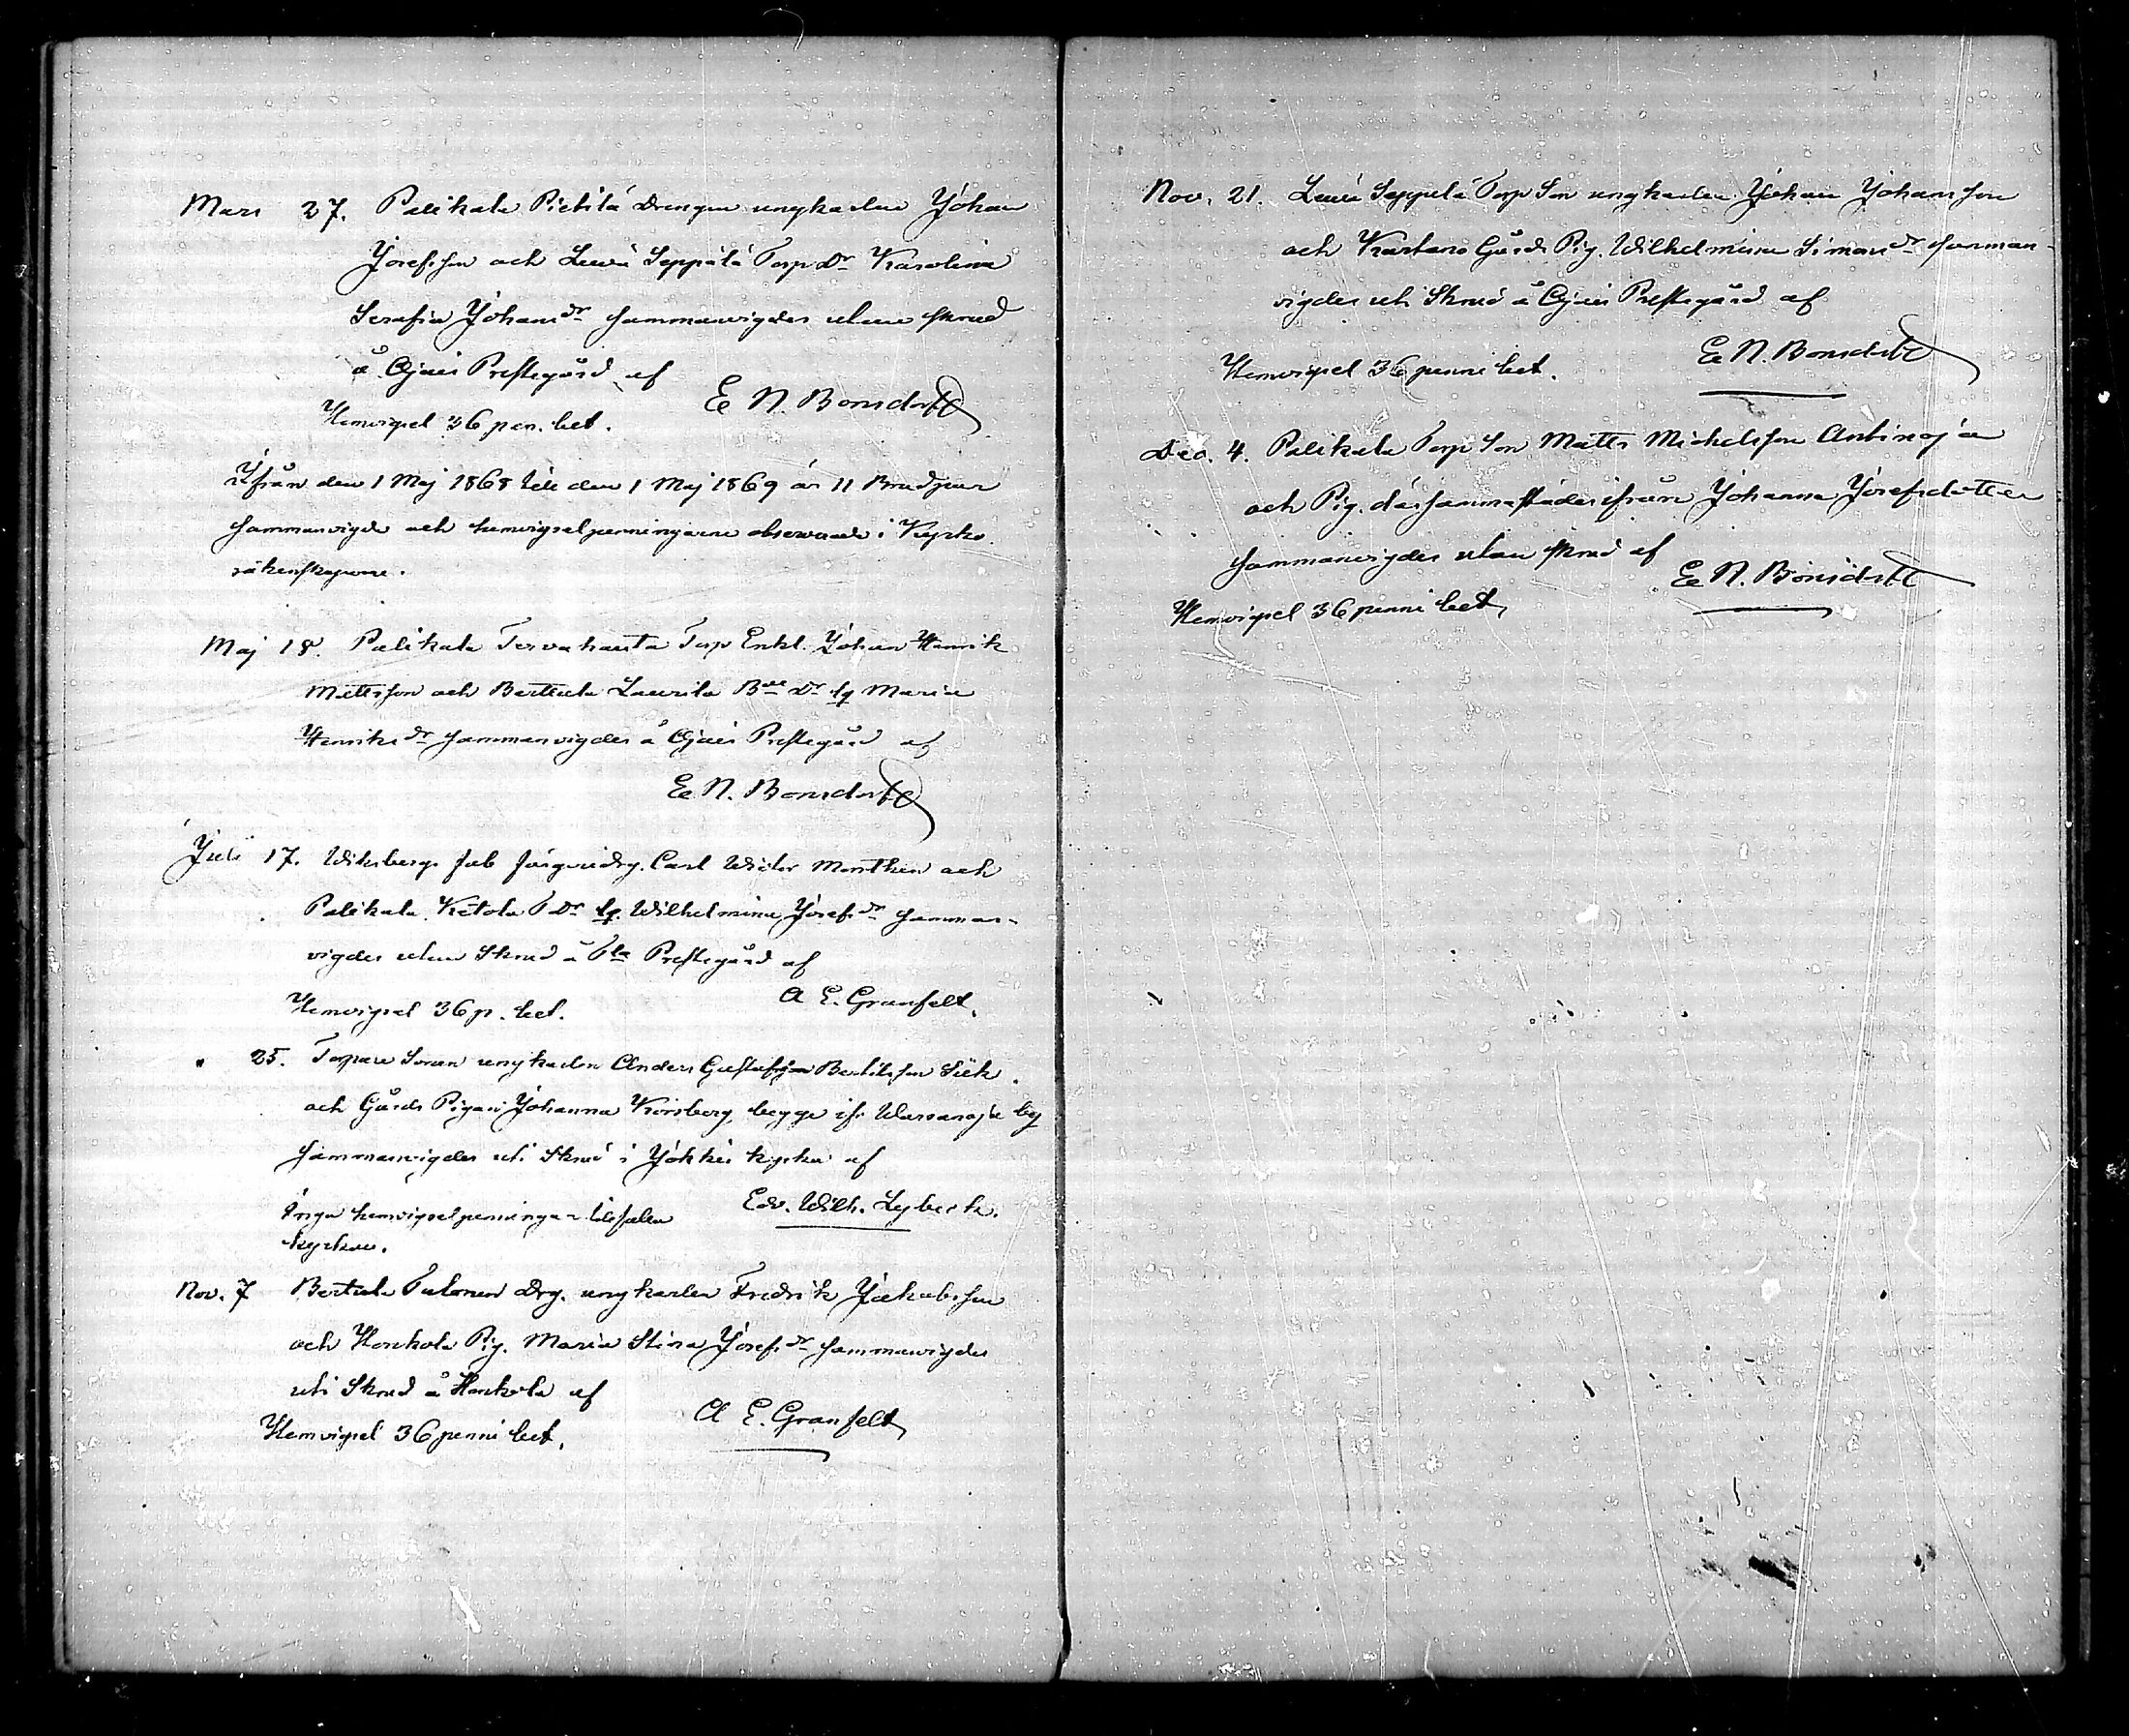 Mars 27. Palikala Pietilä Drengen ungkarlen Johan
Josefsson och Lewä Seppälä Torp Dr Karolina
Serafia Johansdr sammanvigdes utan skrud
å Ojais Prestegård af
E N. Bonsdorff
Hemvigsel 36 pen. bet.
Ifrån den 1 Maj 1868 till den 1 Maj 1869 är 11 Brudpar
sammanvigde och hemvigselpenningarne observerade i Kyrko
räkenskaperne.
Maj 18. Palikala Tervahauta Torp Enkl. Johan Henrik
Mattsson och Berttula Laurila Bde Dr lq Maria
Henriksdr sammanvigdes å Ojais Prestegård af
E. N. Bonsdorff
Juli 17. Wiksbergs fab Carl Victor Morthen och
Palikala Ketola T Dr lq. Wilhelmina Josefsdr samman-
vigdes utan Skrud å Tla Prestegård af
Hemvigsel 36 p. bet.
A E. Granfelt.
" 25. Torpare Sonen ungkarlen Anders Gustafsson Bertilsson Siek
och Gårds Pigan Johanna Korsberg, begge ifr. by
sammanvigdes uti Skrud i Jokkis kyrka af
Edv. Wilh. Lybeck.
Inga hemvigselpenningar tillfallen
kyrkan.
Nov. 7 Bertula Tulonen Drg. ungkarlen Fredrik Jakobsson
och Honkola Pig. Maria Stina Josefsdr sammanvigdes
uti Skrud å Honkola af
A E. Granfelt
Hemvigsel 36 penni bet.
Nov. 21. Lewä Seppälä Torp Son ungkarlen Johan Johansson
och Kartano Gårds Pig. Wilhelmina Simonsdr samman-
vigdes uti Skrud å Ojais Prestegård af
E. N. Bonsdorff
Hemvigsel 36 penni bet.
Dec. 4. Palikala Torp Son Matts Michelsson Antinoja
och Pig. därsammastädes ifrån Johanna Josefsdotter
sammanvigdes utan skrud af
E. N. Bonsdorff
Hemvigsel 36 penni bet,